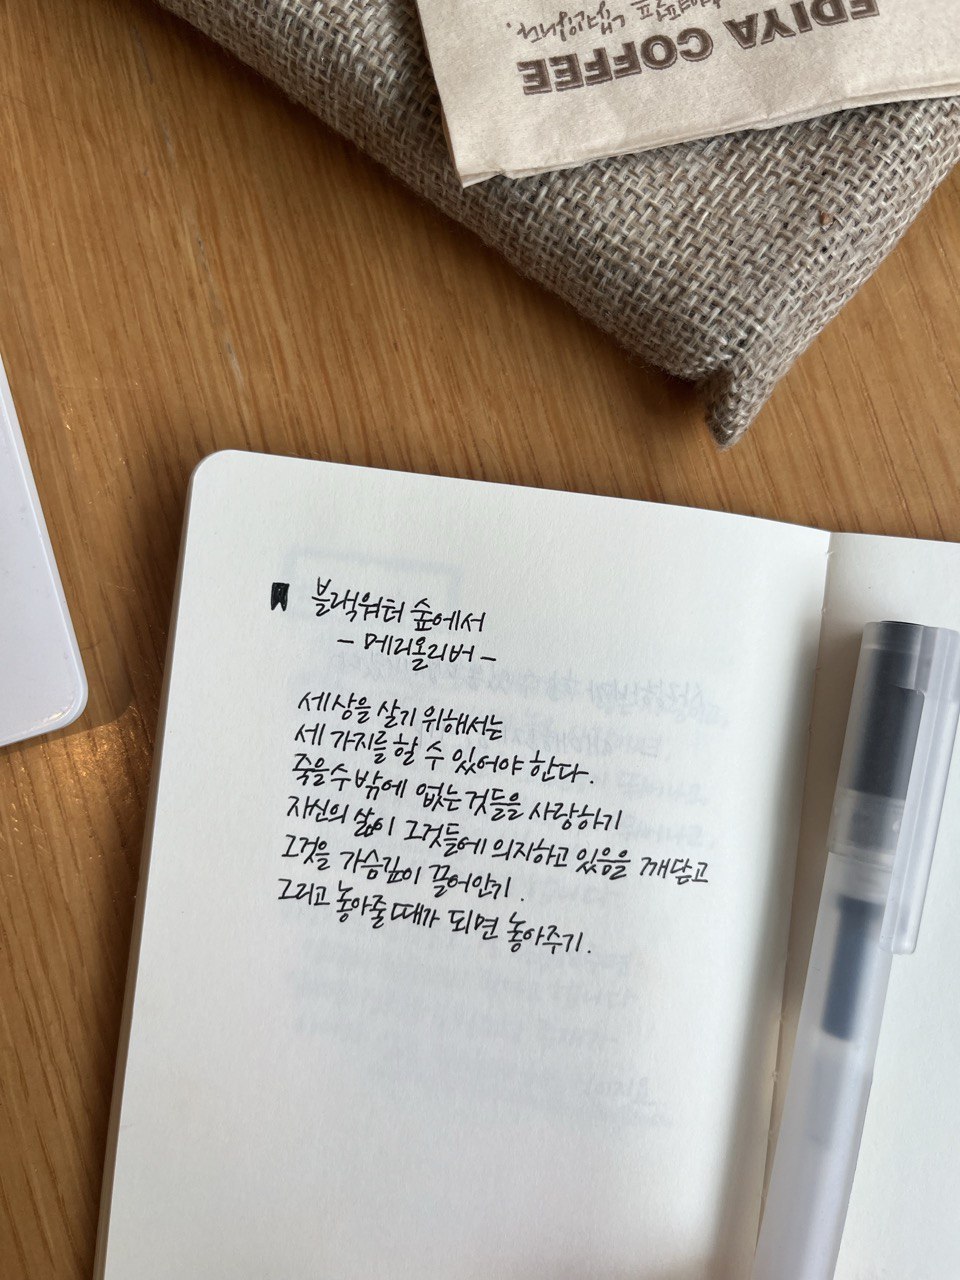 EDIYA COFFEE
블랙워터 숲에서
- 메리올리버 -
세상을 살기 위해서는
세 가지를 할 수 있어야 한다.
죽을수밖에 없는 것들을 사랑하기
자신의 삶이 그것들에 의지하고 있음을 깨닫고
그것을 가슴깊이 끌어안기.
그리고 놓아줄때가 되면 놓아주기.